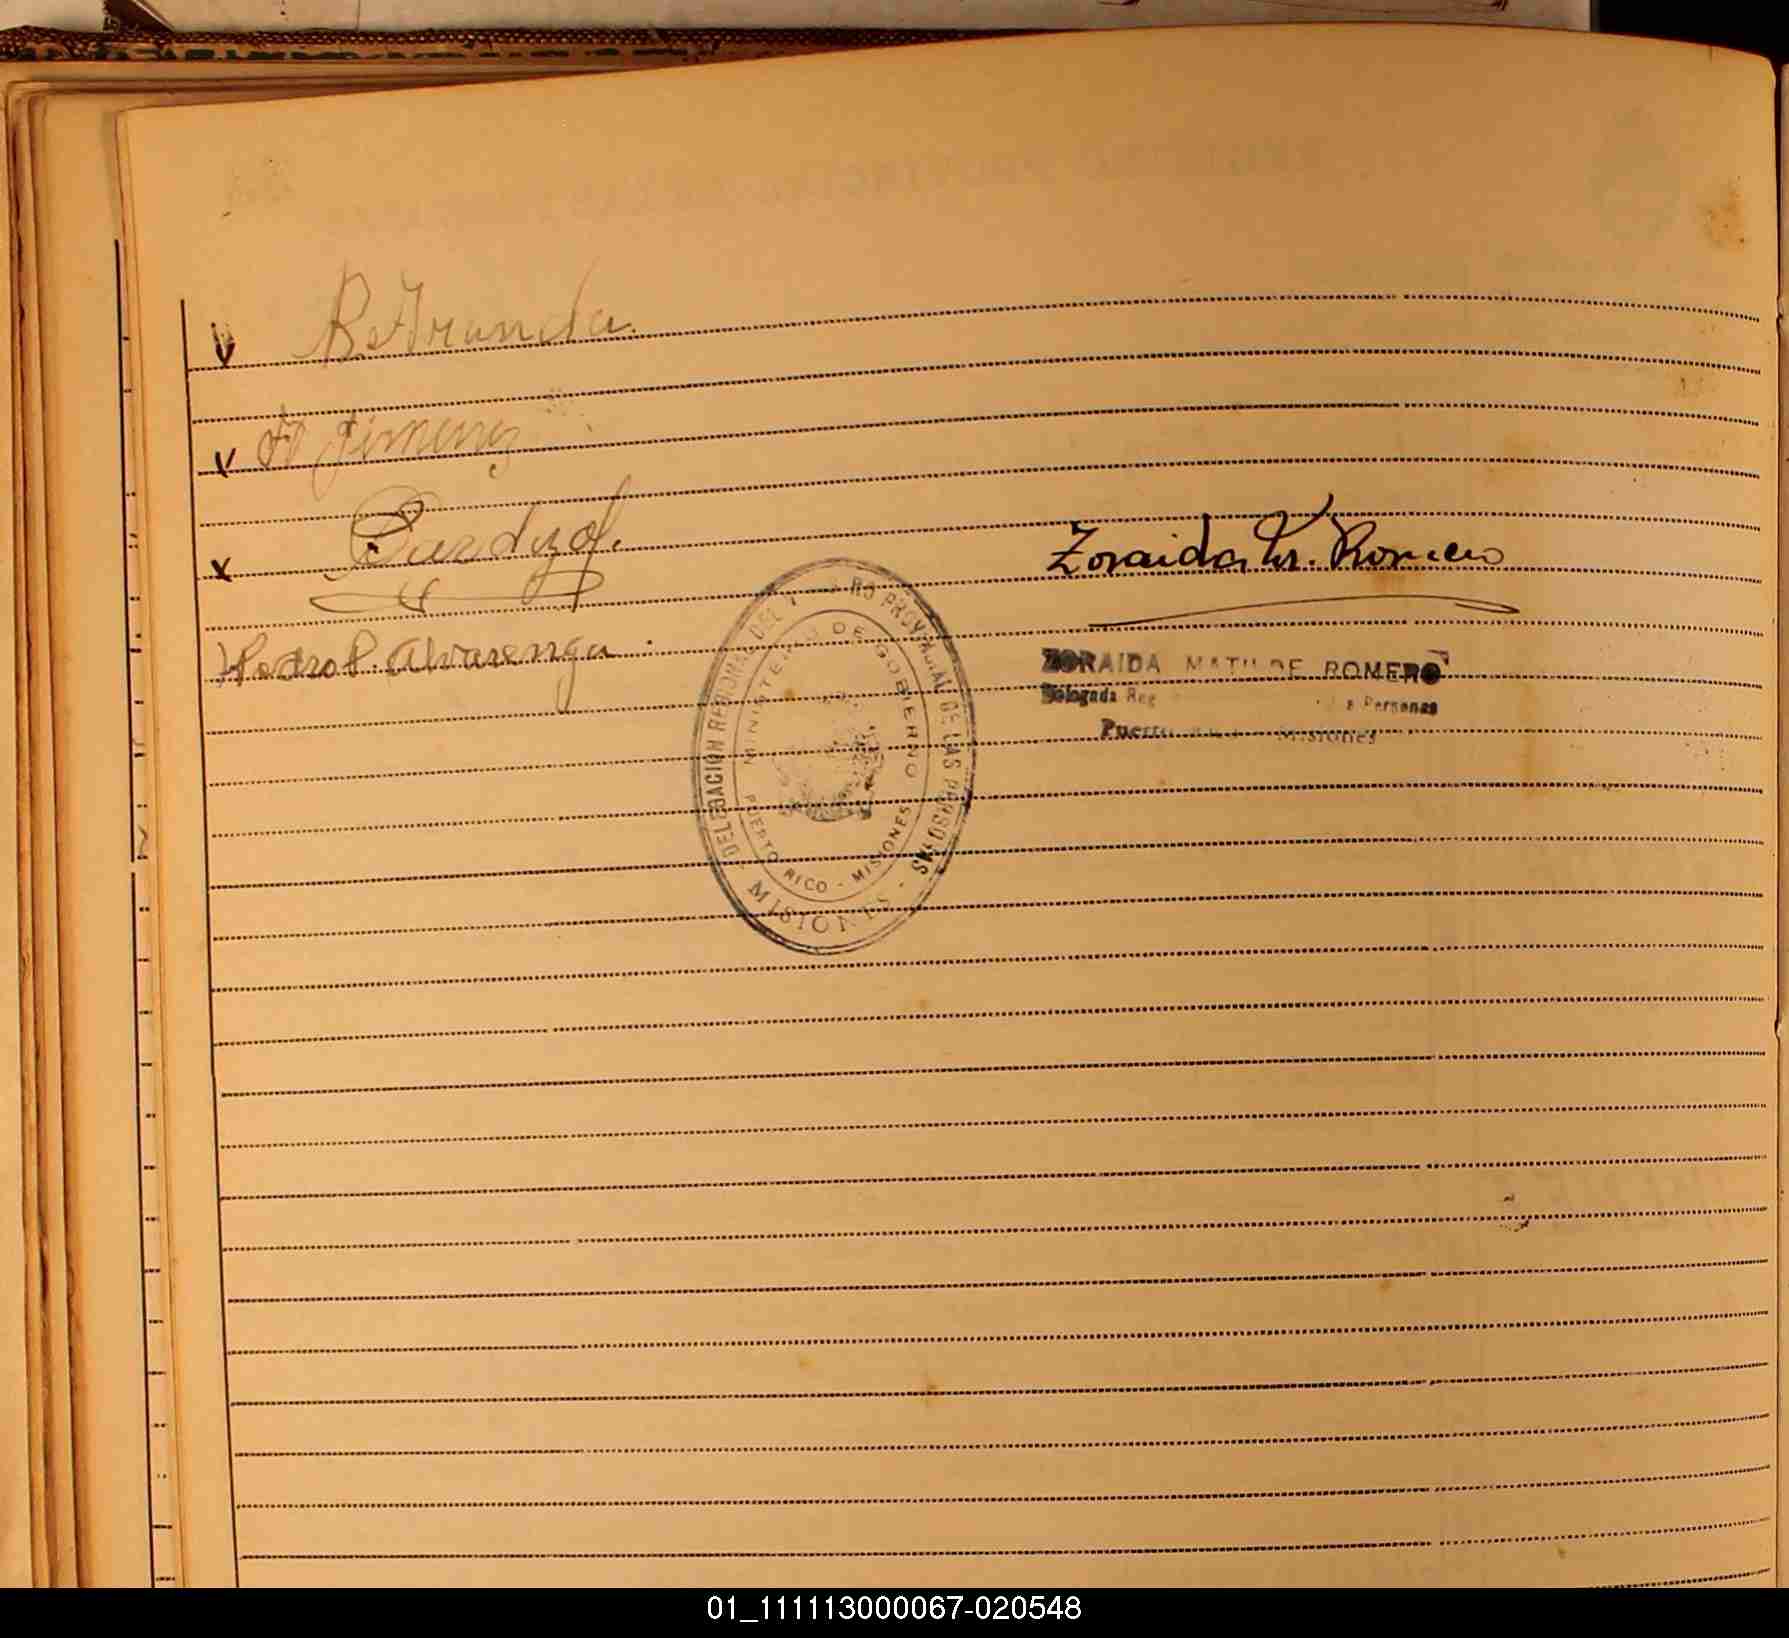 v B. Aranda.
v A Jimenez
x
Pedro P. Alvarenga.
Zoraida M. Romero
ZORAIDA MATILDE ROMERO
Delegada Reg a Personas
Puerto Rico - Misiones
DELEGACION REGIONAL DEL RO PROVINCIAL DE LAS PERSONAS
- MISIONES -
MINISTERIO DE GOBIERNO
PUERTO RICO - MISIONES
01_111113000067-020548